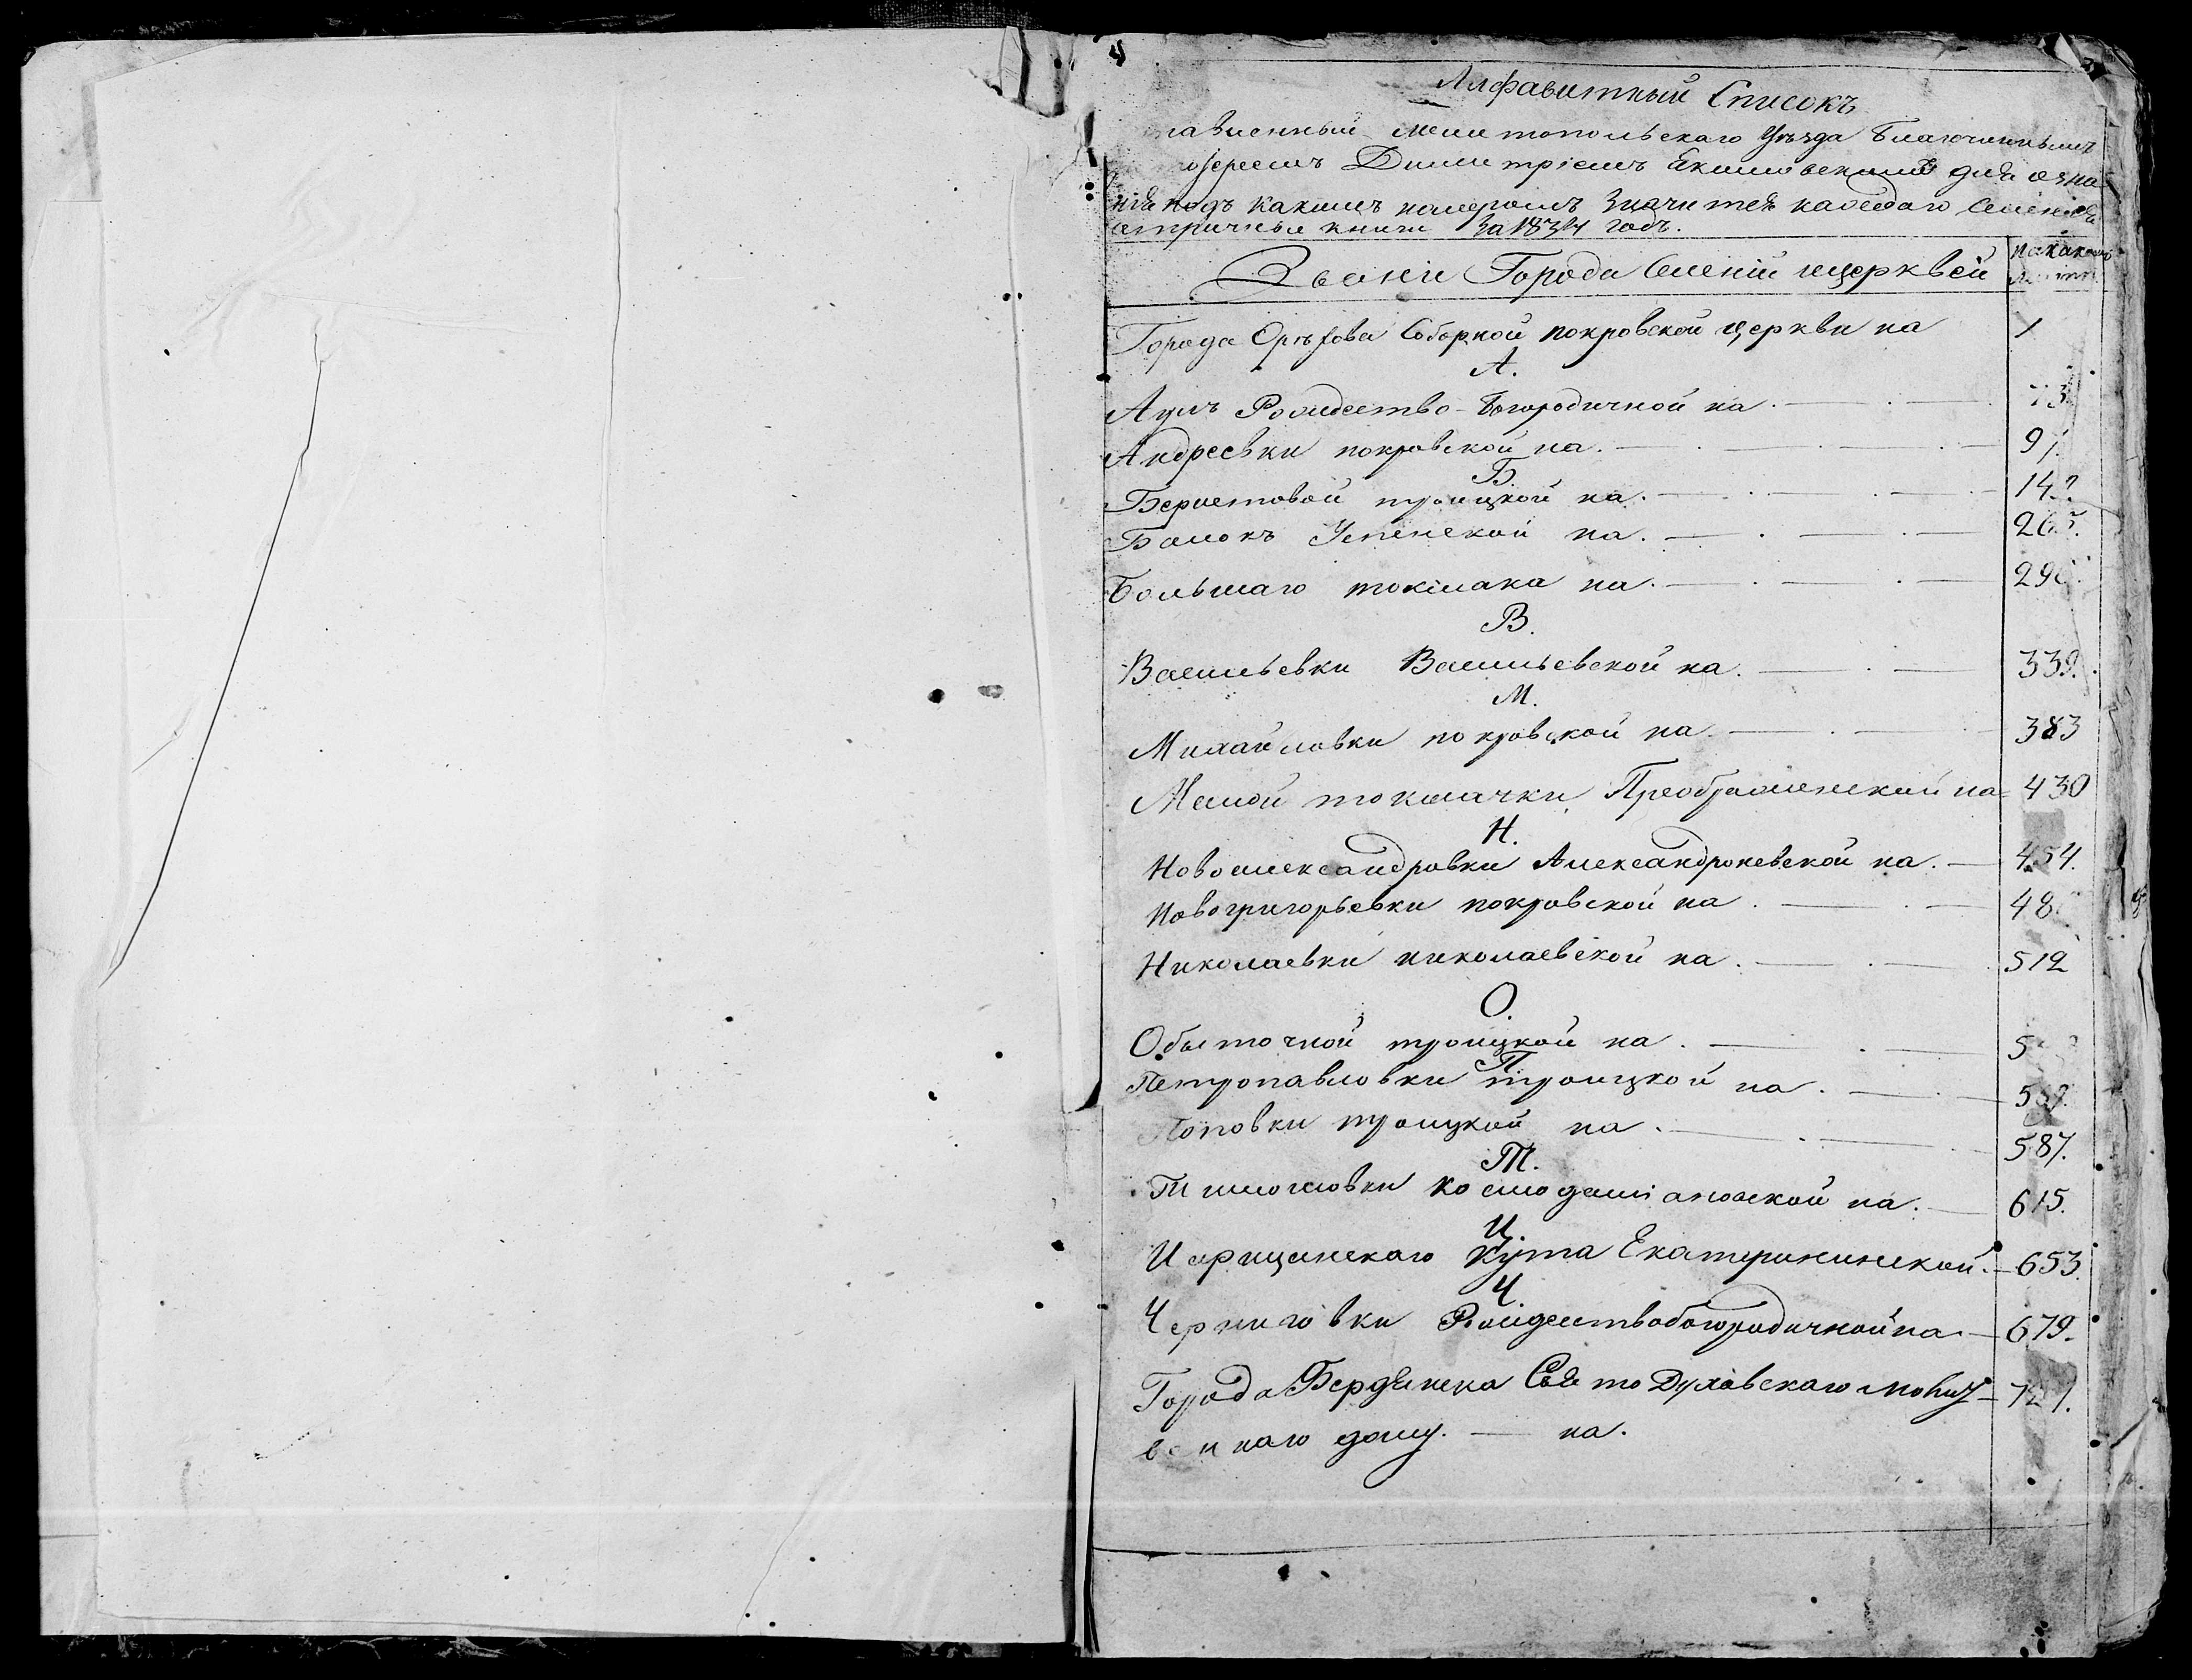 Алфавитный Списокъ
Мелитопольскаго Уѣзда Благочиннымъ
Димитріемъ Екимовскимъ для озна
нія подъ какимъ номеромъ значится каждаго Селенія
етричныя книги за 1834 годъ.
Званіи Города Селеній и церквей
на какомъ
Города Орѣхова Соборной покровской церкви на 1
А.
Аулъ Рождество-Богородичной на. 73
Андреевки покровской на. 91.
Б.
Берестовой троицкой на. 142
Балокъ Успенской на. 265.
Большаго токмака на. 29
В.
Васильевки Васильевской на. 339.
М.
Михайловки покровской на 383
Малой токмачки Преображенской на 430
Н.
Новоалександровки Александроневской на. 454.
Новогригорьевки покровской на. 48
Николаевки николаевской на. 512
О.
Обыточной троицкой на. 5
П
Петропавловки троицкой на.
Поповки троицкой на. 587.
Т.
Тимошовки Космодаміановской на. 615.
Ц.
Царицинскаго Кута Екатерининской. 653.
Ч
Черниговки Рождествобогородичной на. 679.
Города Бердянска Свято Духовскаго молит
веннаго дому. на.